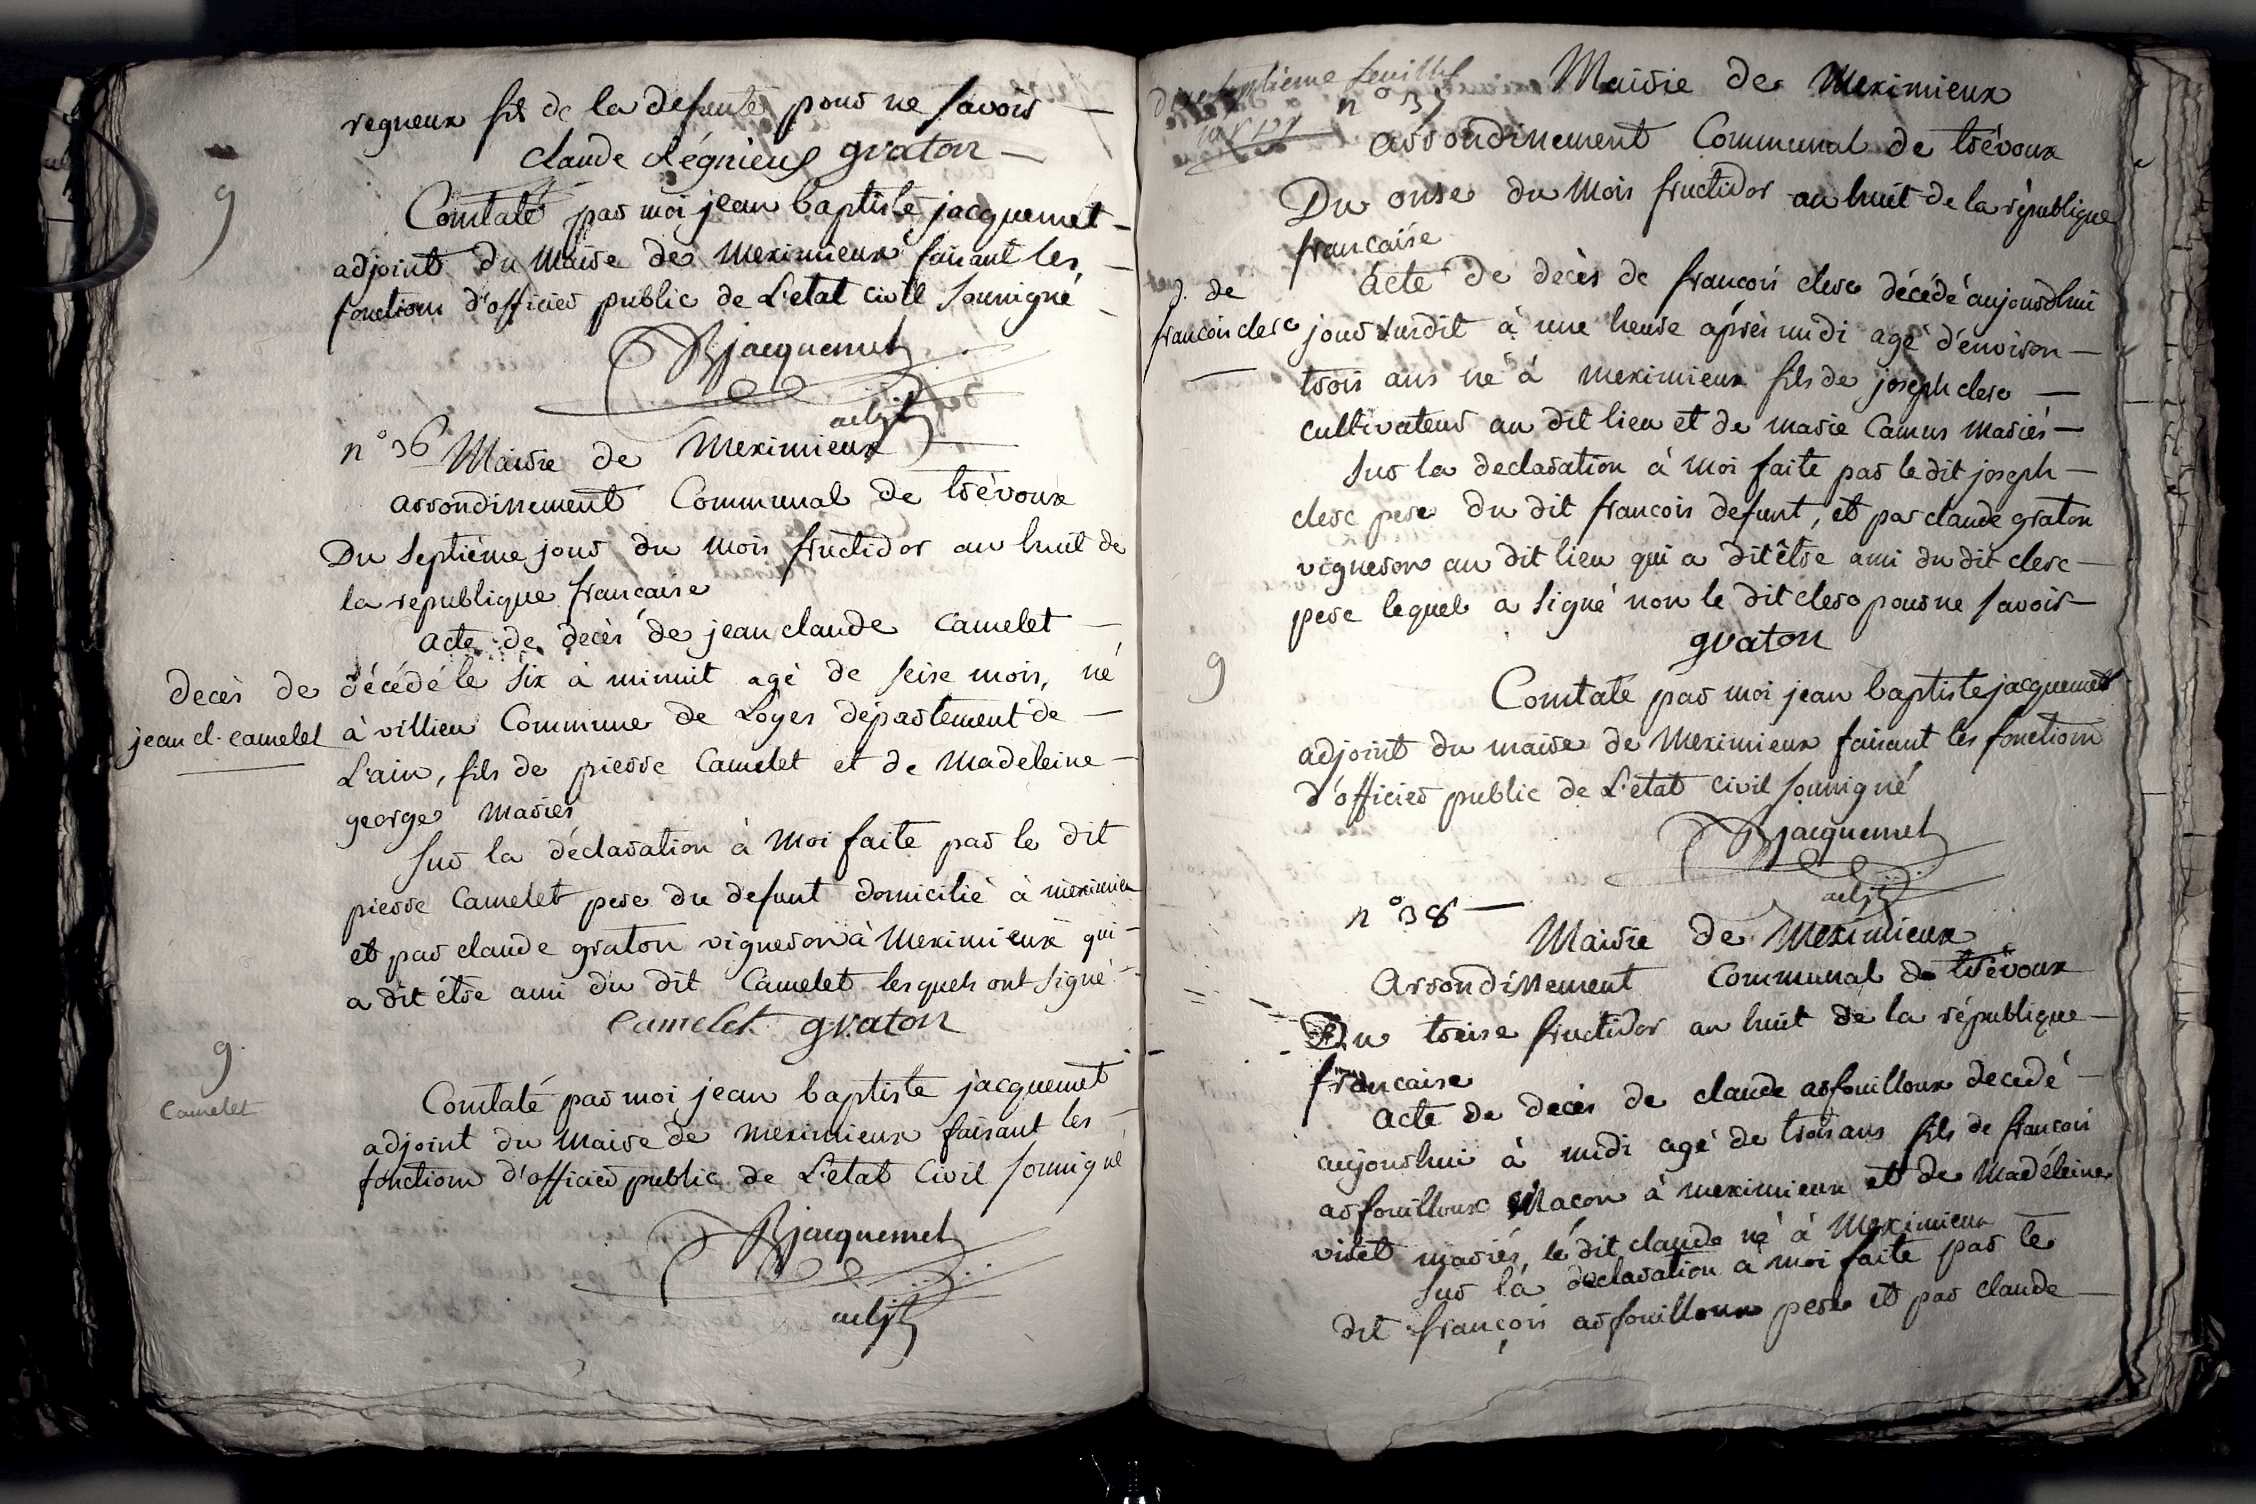 regneux fils de la defunte pour ne savoir —
claude Régnieux graton —
9
Constaté par moi jean baptiste jacquemet —
adjoint du Maire de Meximieux faisant les —
fonctions d'officier public de L'etat civil soussigné —
B jacquemet
adjt
n° 36 Mairie de Meximieux
arrondissement Communal de trévoux
Du septième jour du mois fructidor an huit de
la republique francaise
acte de decès de jean claude Camelet —
decès de
jean cl. camelet
décédé le six à minuit agé de seise mois, né
à villieu Commune de Loyes département de —
L'ain, fils de pierre Camelet et de Madeleine —
george Mariés
sur la déclaration à Moi faite par le dit
pierre Camelet pere du defunt domicilié à meximieu
et par claude graton vigneron à Meximieux qui —
a dit être ami du dit Camelet lesquels ont signé —
Camelet graton
9
Camelet
Constaté par moi jean baptiste jacquemet
adjoint du Maire de Meximieux faisant les —
fonctions d'officier public de L'etat Civil soussigné
B jacquemet
adjt
dixseptieme feuillet
n° 37 Mairie de Meximieux
arrondissement Communal de trévoux
Du onse du Mois fructidor an huit de la république
francaise
d. de
francois clerc
Acte de decès de francois clerc décédé aujourdhui
jour susdit à une heure après midi agé d'environ —
trois ans né à Meximieux fils de joseph clerc —
cultivateur au dit lieu et de marie Camus mariés —
sur la declaration à moi faite par le dit joseph —
clerc pere du dit francois defunt, et par claude graton
vigneron au dit lieu qui a dit être ami du dit clerc —
pere lequel a signé non le dit clerc pour ne savoir —
graton
9
Constaté par moi jean baptiste jacquemet
adjoint du maire de Meximieux faisant les fonctions
d'officier public de L'état civil soussigné
B jacquemet
adjt
n° 38 —
Mairie de Meximieux
Arrondissement Communal de trévoux
Du treise fructidor an huit de la république —
francaise
acte de decès de claude arfouilloux decedé —
aujourhui à midi agé de trois ans fils de francois
arfouilloux Macon à meximieux et de Madéleine
vinet mariés, le dit claude né à Meximieux
sur la declaration à moi faite par le
dit françois arfouilloux pere et par claude —